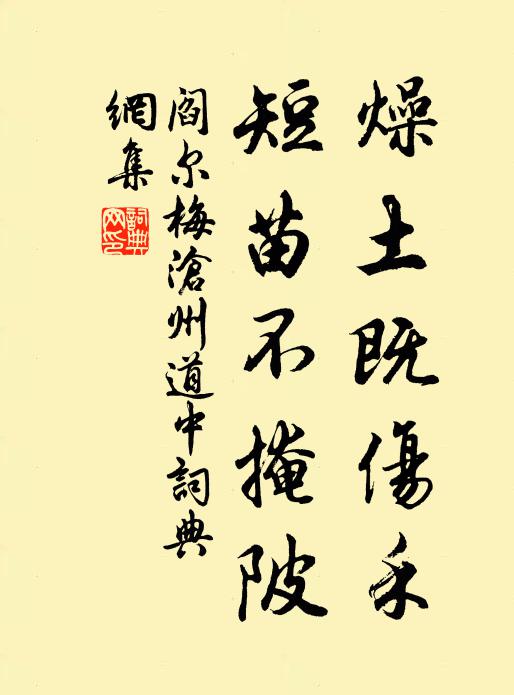 燥土既傷禾
短苗不掩陂
閻尔梅滄州道中詞典
網集
詞典網印